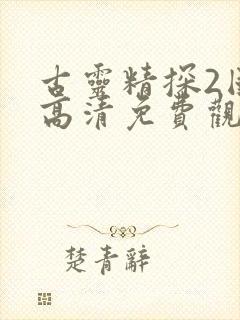 古靈精探2
高清免費觀
楚青辭